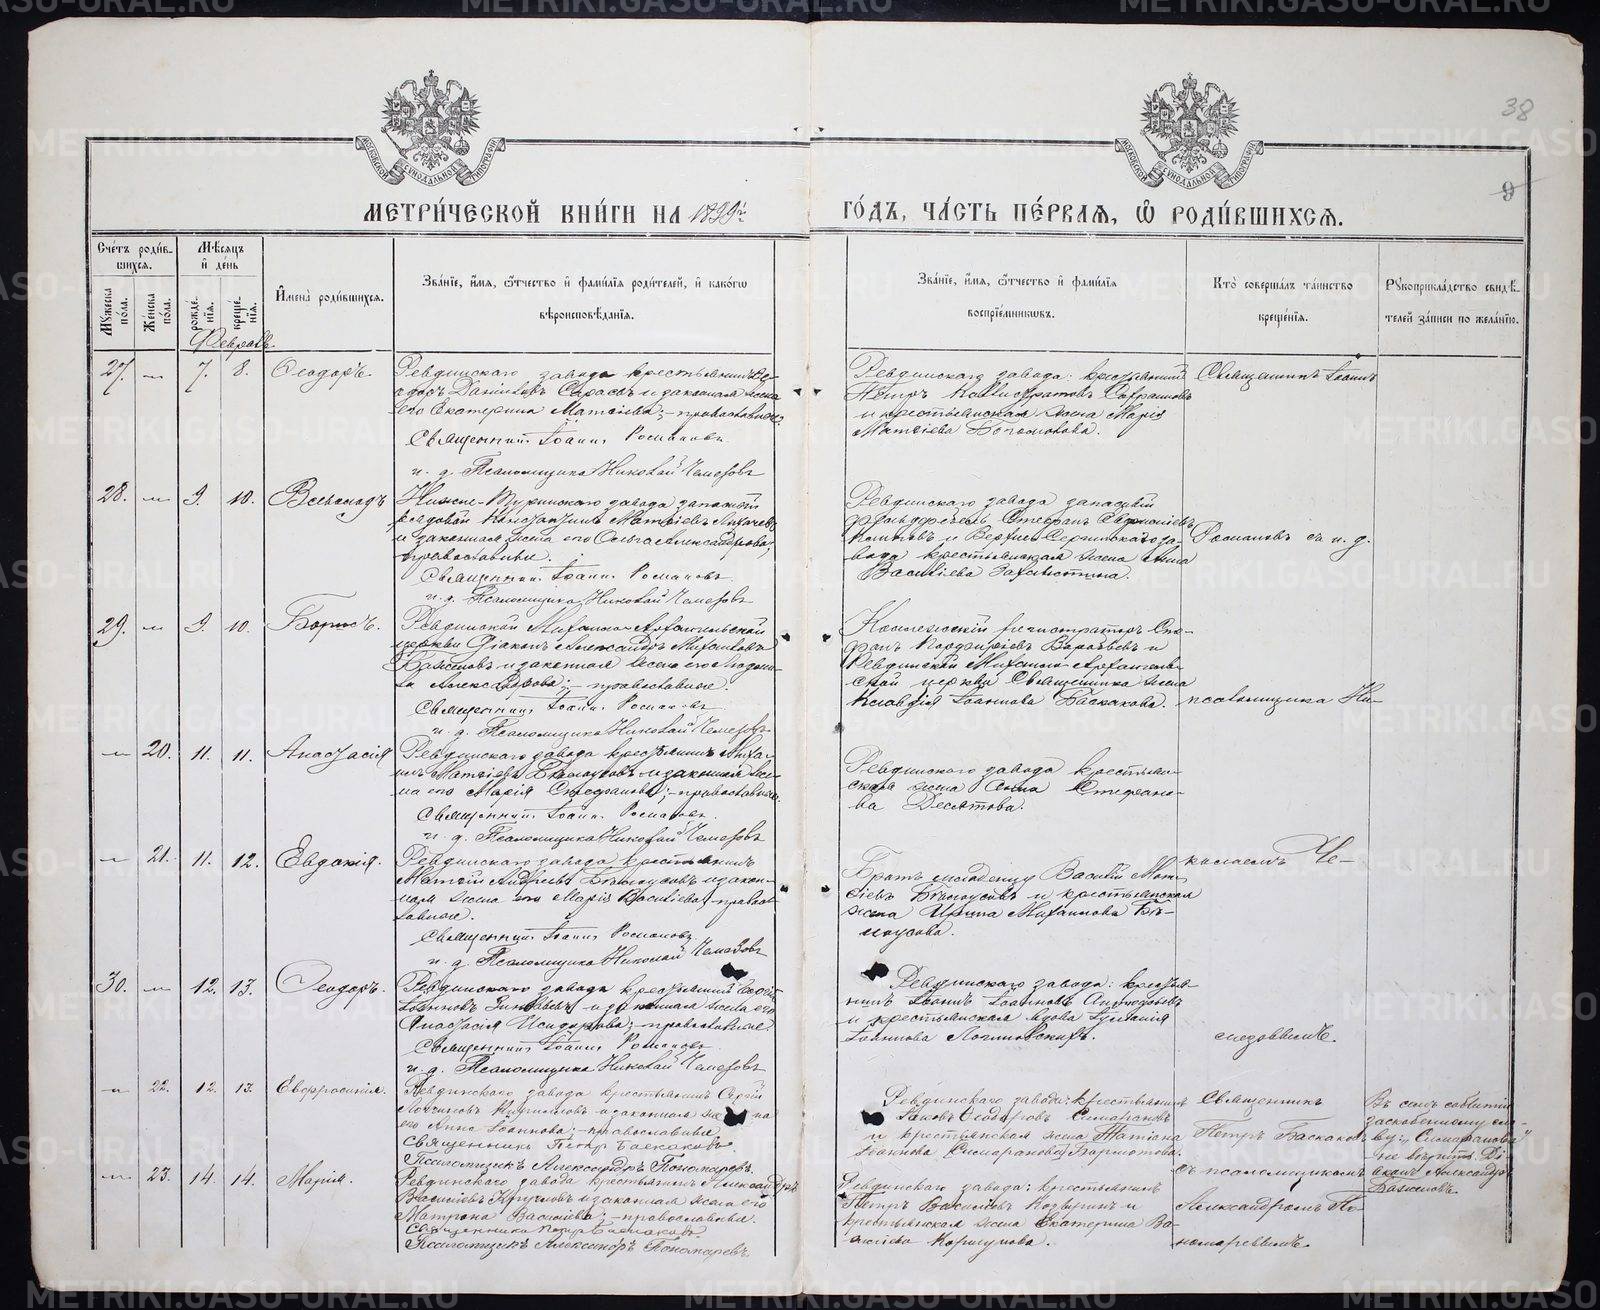 38
9
МЕТРИ́ЧЕСКОЙ КНИ́ГИ НА 1899й
ГО́ДЪ, ЧА́СТЬ ПЕ́РВАЯ, Ѡ РОДИ́ВШИХСЯ.
Сче́тъ роди́в-
шихся.
Мꙋ́жеска по́ла.
Же́нска по́ла.
Мѣ́сяцъ
и҆ де́нь
рожде́-
нїя.
креще́-
нїя.
И҆мена̀ роди́вшихся.
Зва́нїе, и҆́мя, ѻ҆́тчество и҆ фами́лїя роди́телей, и҆ како́гѡ
вѣроисповѣ́данїя.
Зва́нїе, и҆́мя, ѻ҆́тчество и҆ фами́лїя
воспрїе́мникѡвъ.
Кто̀ соверша́лъ та́инство
креще́нїя.
Рꙋкоприкла́дство свидѣ́-
телей за́писи по жела́нїю.
Февраль
27. — 7. 8. Ѳеодоръ.
Ревдинскаго завода крестьянинъ Ѳе-
одоръ Данииловъ и законная жена
его Екатерина Матѳіева; православные.
Священникъ Іоаннъ Романовъ.
и. д. Псаломщика Николай Чемезовъ
Ревдинскаго завода: крестьянинъ
Петръ Каллистратовъ
и крестьянская жена Марія
Матѳіева.
Священникъ Іоаннъ
28. — 9. 10. Всеволодъ
Нижне-Туринскаго завода запасный
рядовой Константинъ Матѳіевъ
и законная жена его Ольга Александрова;
православные.
Священникъ Іоаннъ Романовъ.
и. д. Псаломщика Николай Чемезовъ
Ревдинскаго завода запасный
фельдфебель Стефанъ
и Верхне-Сергинскаго за-
вода крестьянская жена Анна
Василіева.
Романовъ съ и. д.
29. — 9. 10. Борисъ.
Ревдинской Михаило-Архангельской
церкви Діаконъ Александръ Михаиловъ
Баженовъ и законная жена его Людми-
ла Александрова; православные.
Священникъ Іоаннъ Романовъ
и. д. Псаломщика Николай Чемезовъ
Коллежскій регистраторъ Сте-
фанъ Порфирьевъ Воробьевъ и
Ревдинской Михаило-Архангель-
ской церкви Священника жена
Клавдія Іоаннова Баскакова.
псаломщика Ни-
— 20. 11. 11. Анастасія
Ревдинскаго завода крестьянинъ Миха-
илъ Матѳіевъ Бѣлоусовъ и законная же-
на его Марія Стефанова; православные.
Священникъ Іоаннъ Романовъ.
и. д. Псаломщика Николай Чемезовъ
Ревдинскаго завода крестьян-
ская жена Анна Стефано-
ва Десятова.
— 21. 11. 12. Евдокія.
Ревдинскаго завода крестьянинъ
Матѳій Андреевъ Бѣлоусовъ и закон-
ная жена его Марія Василіева; правос-
лавные.
Священникъ Іоаннъ Романовъ
и. д. Псаломщика Николай Чемезовъ
Братъ младенцу Василій Мат-
ѳіевъ Бѣлоусовъ и крестьянская
жена Ирина Михаилова Бѣ-
лоусова.
колаемъ Че-
30. — 12. 13. Ѳеодоръ.
Ревдинскаго завода крестьянинъ
Іоанновъ и законная жена его
Анастасія Исидорова; православные
Священникъ Іоаннъ Романовъ
и. д. Псаломщика Николай Чемезовъ
Ревдинскаго завода: крестья-
нинъ Іоаннъ Іоанновъ
и крестьянская вдова
Іоаннова Логиновскихъ.
мезовымъ.
— 22. 12. 13. Евфросинія.
Ревдинскаго завода крестьянинъ Сергій
Логиновъ и законная жена
его Анна Іоаннова; православные
Священникъ Петръ Баскаковъ.
Псаломщикъ Александръ Пономаревъ.
Ревдинскаго завода: крестьянинъ
Іаковъ Ѳеодоровъ
и крестьянская жена Татіана
Іоаннова
Священникъ
Петръ Баскаковъ
съ псаломщикомъ
Въ семъ событіи
заскобленному сло-
ву:
не вѣрить. Ді-
аконъ Александръ
Баженовъ.
— 23. 14. 14. Марія.
Ревдинскаго завода крестьянинъ Александръ
Василіевъ Кругловъ и законная жена его
Матрона Василіева; православные.
Священникъ Петръ Баскаковъ
Псаломщикъ Александръ Пономаревъ.
Ревдинскаго завода: крестьянинъ
Петръ Василіевъ и
крестьянская жена Екатерина Ва-
силіева Коршунова.
Александромъ По-
номаревымъ.